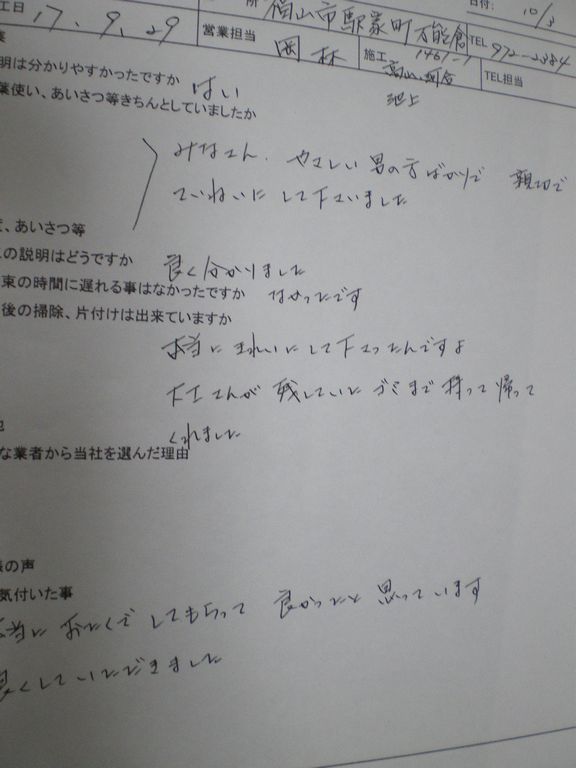 工日 17.9.29 所 福山市駅家町万能倉 日付: 10/3
営業担当 岡林 施工 1461-1 TEL 972-2384
池上 TEL担当
明は分かりやすかったですか はい
葉使い、あいさつ等きちんとしていましたか
みなさん、やさしい男の方ばかりで 親切で
ていねいにして下さいました
、あいさつ等
の説明はどうですか 良く分かりました
束の時間に遅れる事はなかったですか なかったです
後の掃除、片付けは出来ていますか
本当にきれいにして下さったんですよ
大工さんが残していたゴミまで持って帰って
くれました
な業者から当社を選んだ理由
の声
気付いた事
本当におたくでしてもらって 良かったと思っています
良くしていただきました